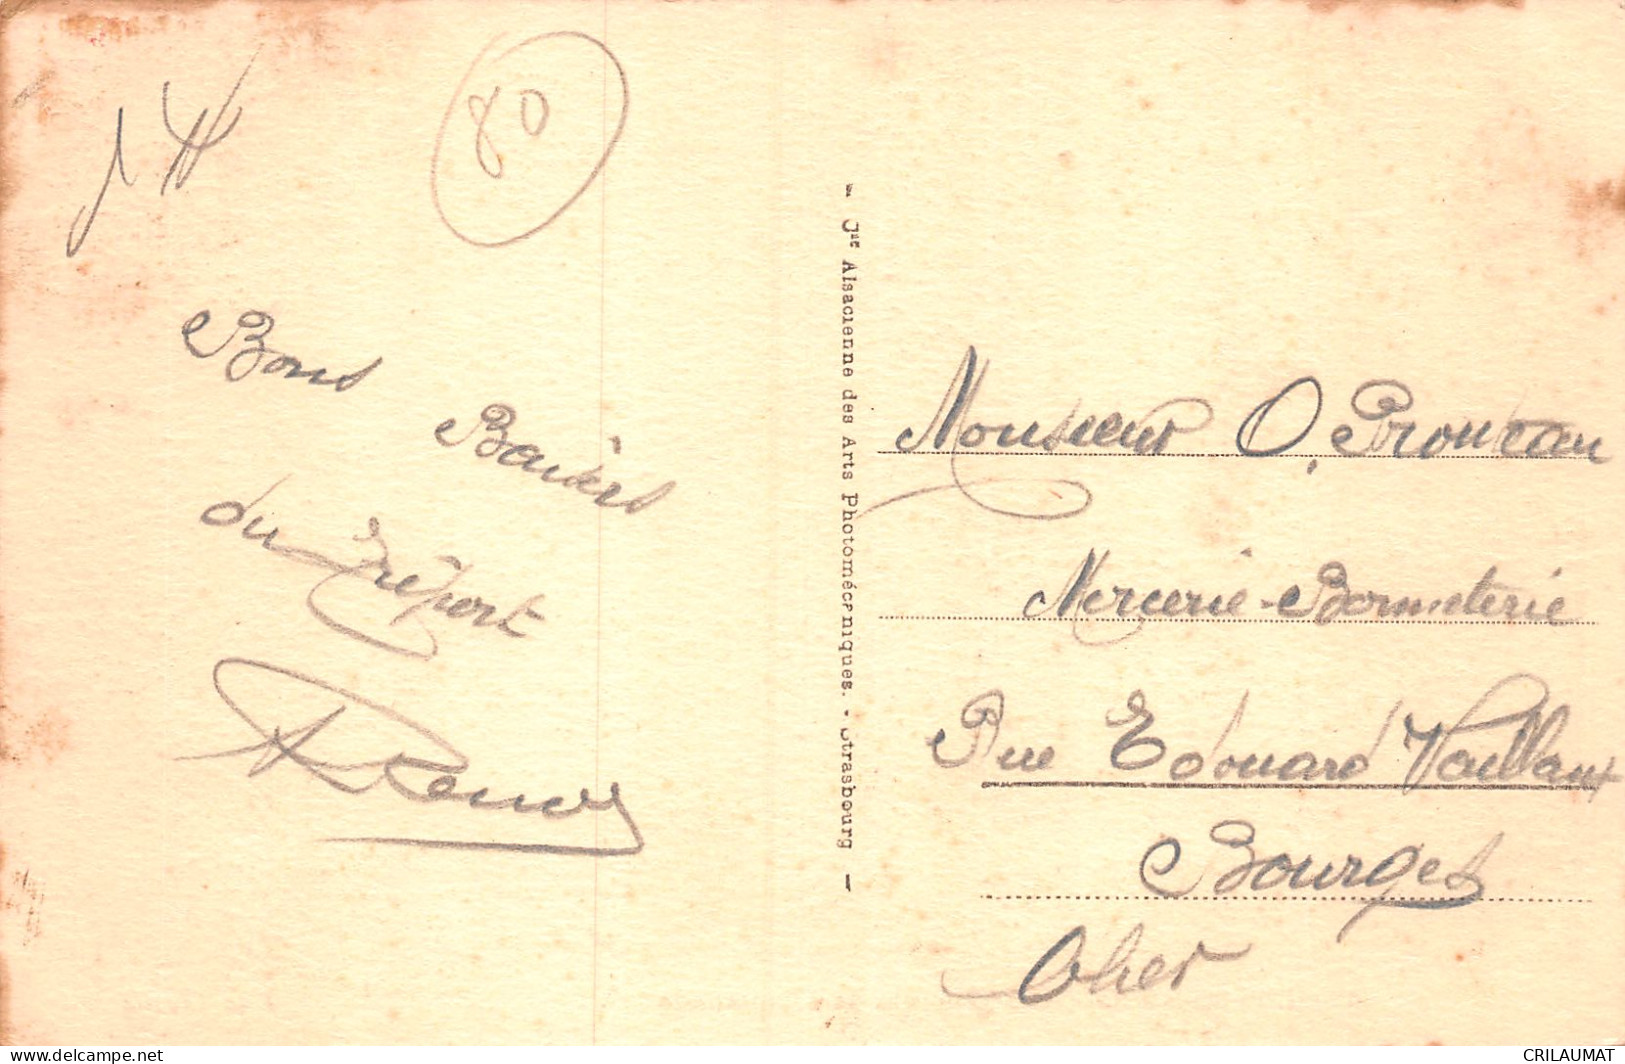 80
Bons Baisers
du Tréport
Cie Alsacienne des Arts Photomécaniques. - Strasbourg
Monsieur O,
Mercerie-Bonneterie
Rue Edouard Vaillant
Bourges
Cher
www.delcampe.net
CRILAUMAT